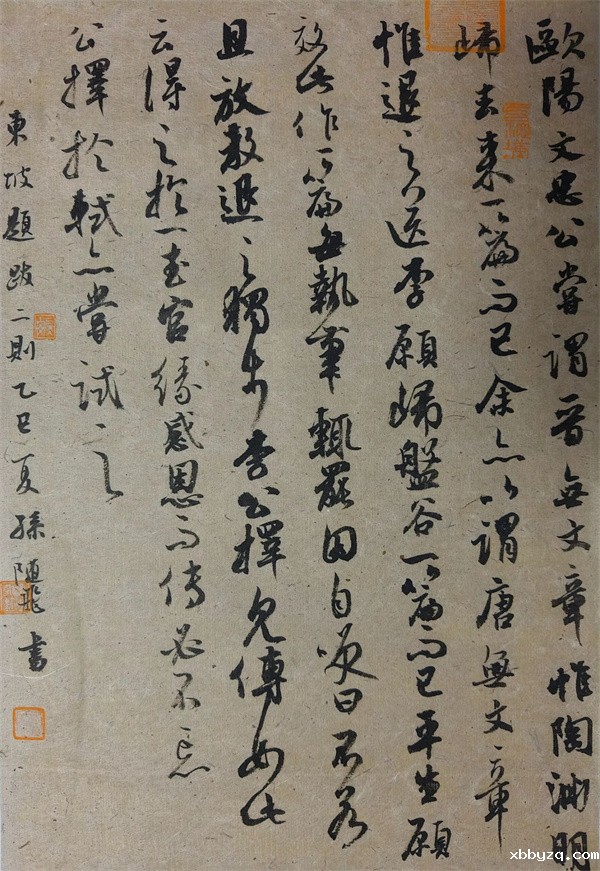 歐陽文忠公嘗謂晉無文章惟陶淵明
歸去来一篇而已余亦以謂唐無文章
惟退之送李願歸盤谷一篇而已平生願
效此作一篇每執筆輒罷因自笑曰不若
且放教退之獨步李公擇見傳如此
云得之於一官緣感恩而傳必不忘
公擇於軾亦嘗試之
東坡題跋二則乙巳夏孫隨飛書
xbbyzq.com